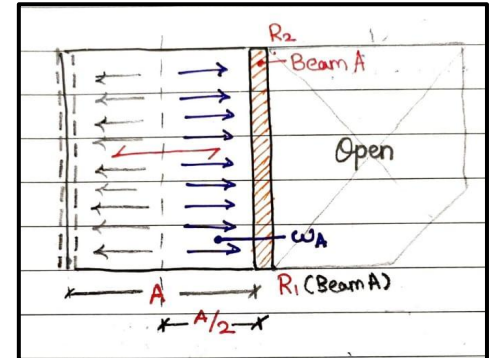 R2
Beam A
Open
ωA
A
R1 (Beam A)
A/2